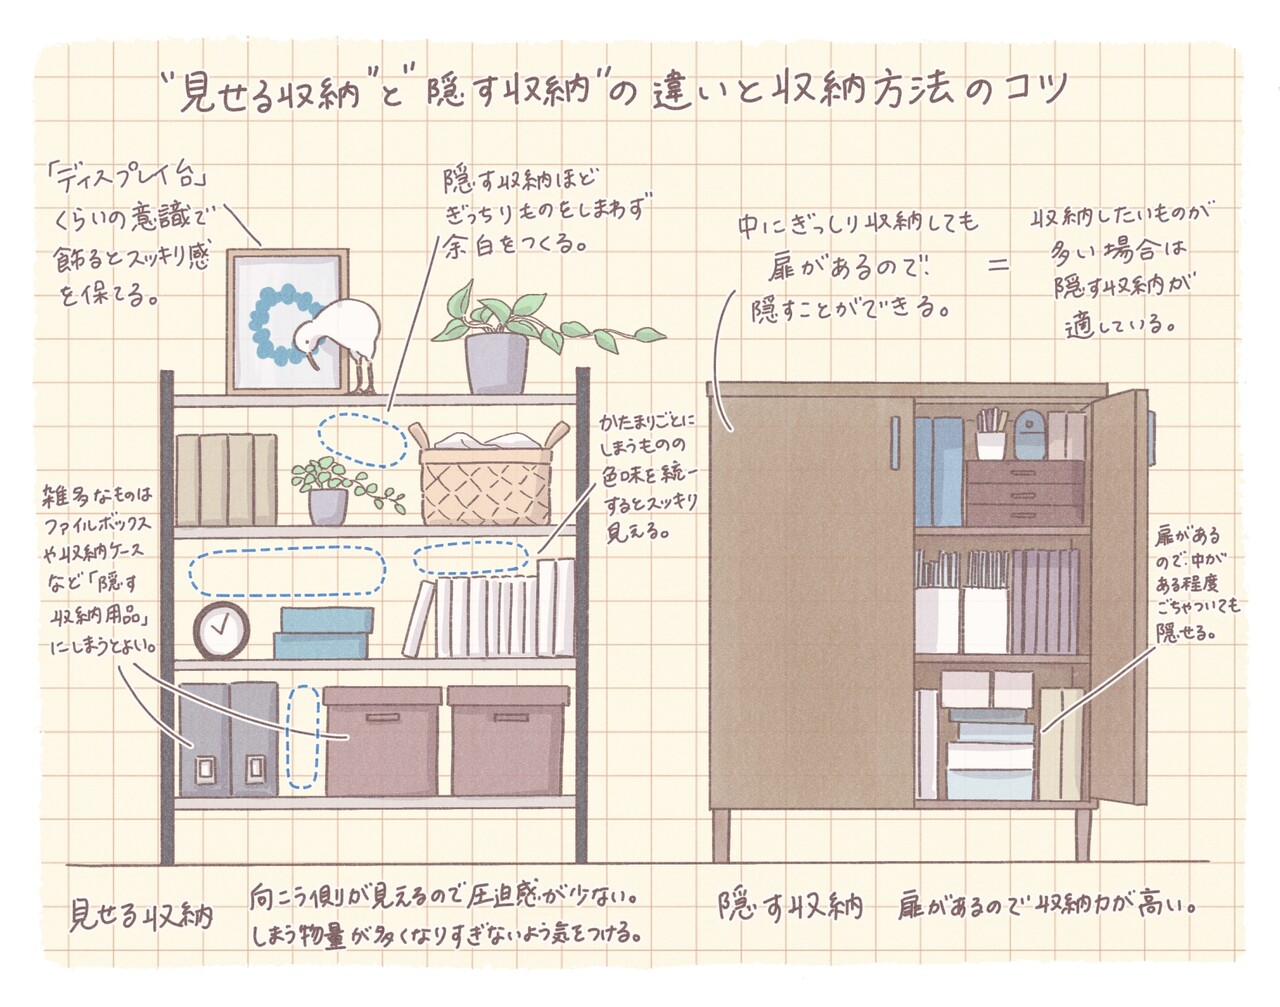 "見せる収納"と"隠す収納"の違いと収納方法のコツ
「ディスプレイ台」
くらいの意識で
飾るとスッキリ感
を保てる。
隠す収納ほど
ぎっちりものをしまわず
余白をつくる。
かたまりごとに
しまうものの
色味を統一
するとスッキリ
見える。
雑多なものは
ファイルボックス
や収納ケース
など「隠す
収納用品」
にしまうとよい。
中にぎっしり収納しても
扉があるので、
隠すことができる。
=
収納したいものが
多い場合は
隠す収納が
適している。
扉がある
ので、中が
ある程度
ごちゃついても
隠せる。
見せる収納
向こう側が見えるので圧迫感が少ない。
しまう物量が多くなりすぎないよう気をつける。
隠す収納
扉があるので収納力が高い。